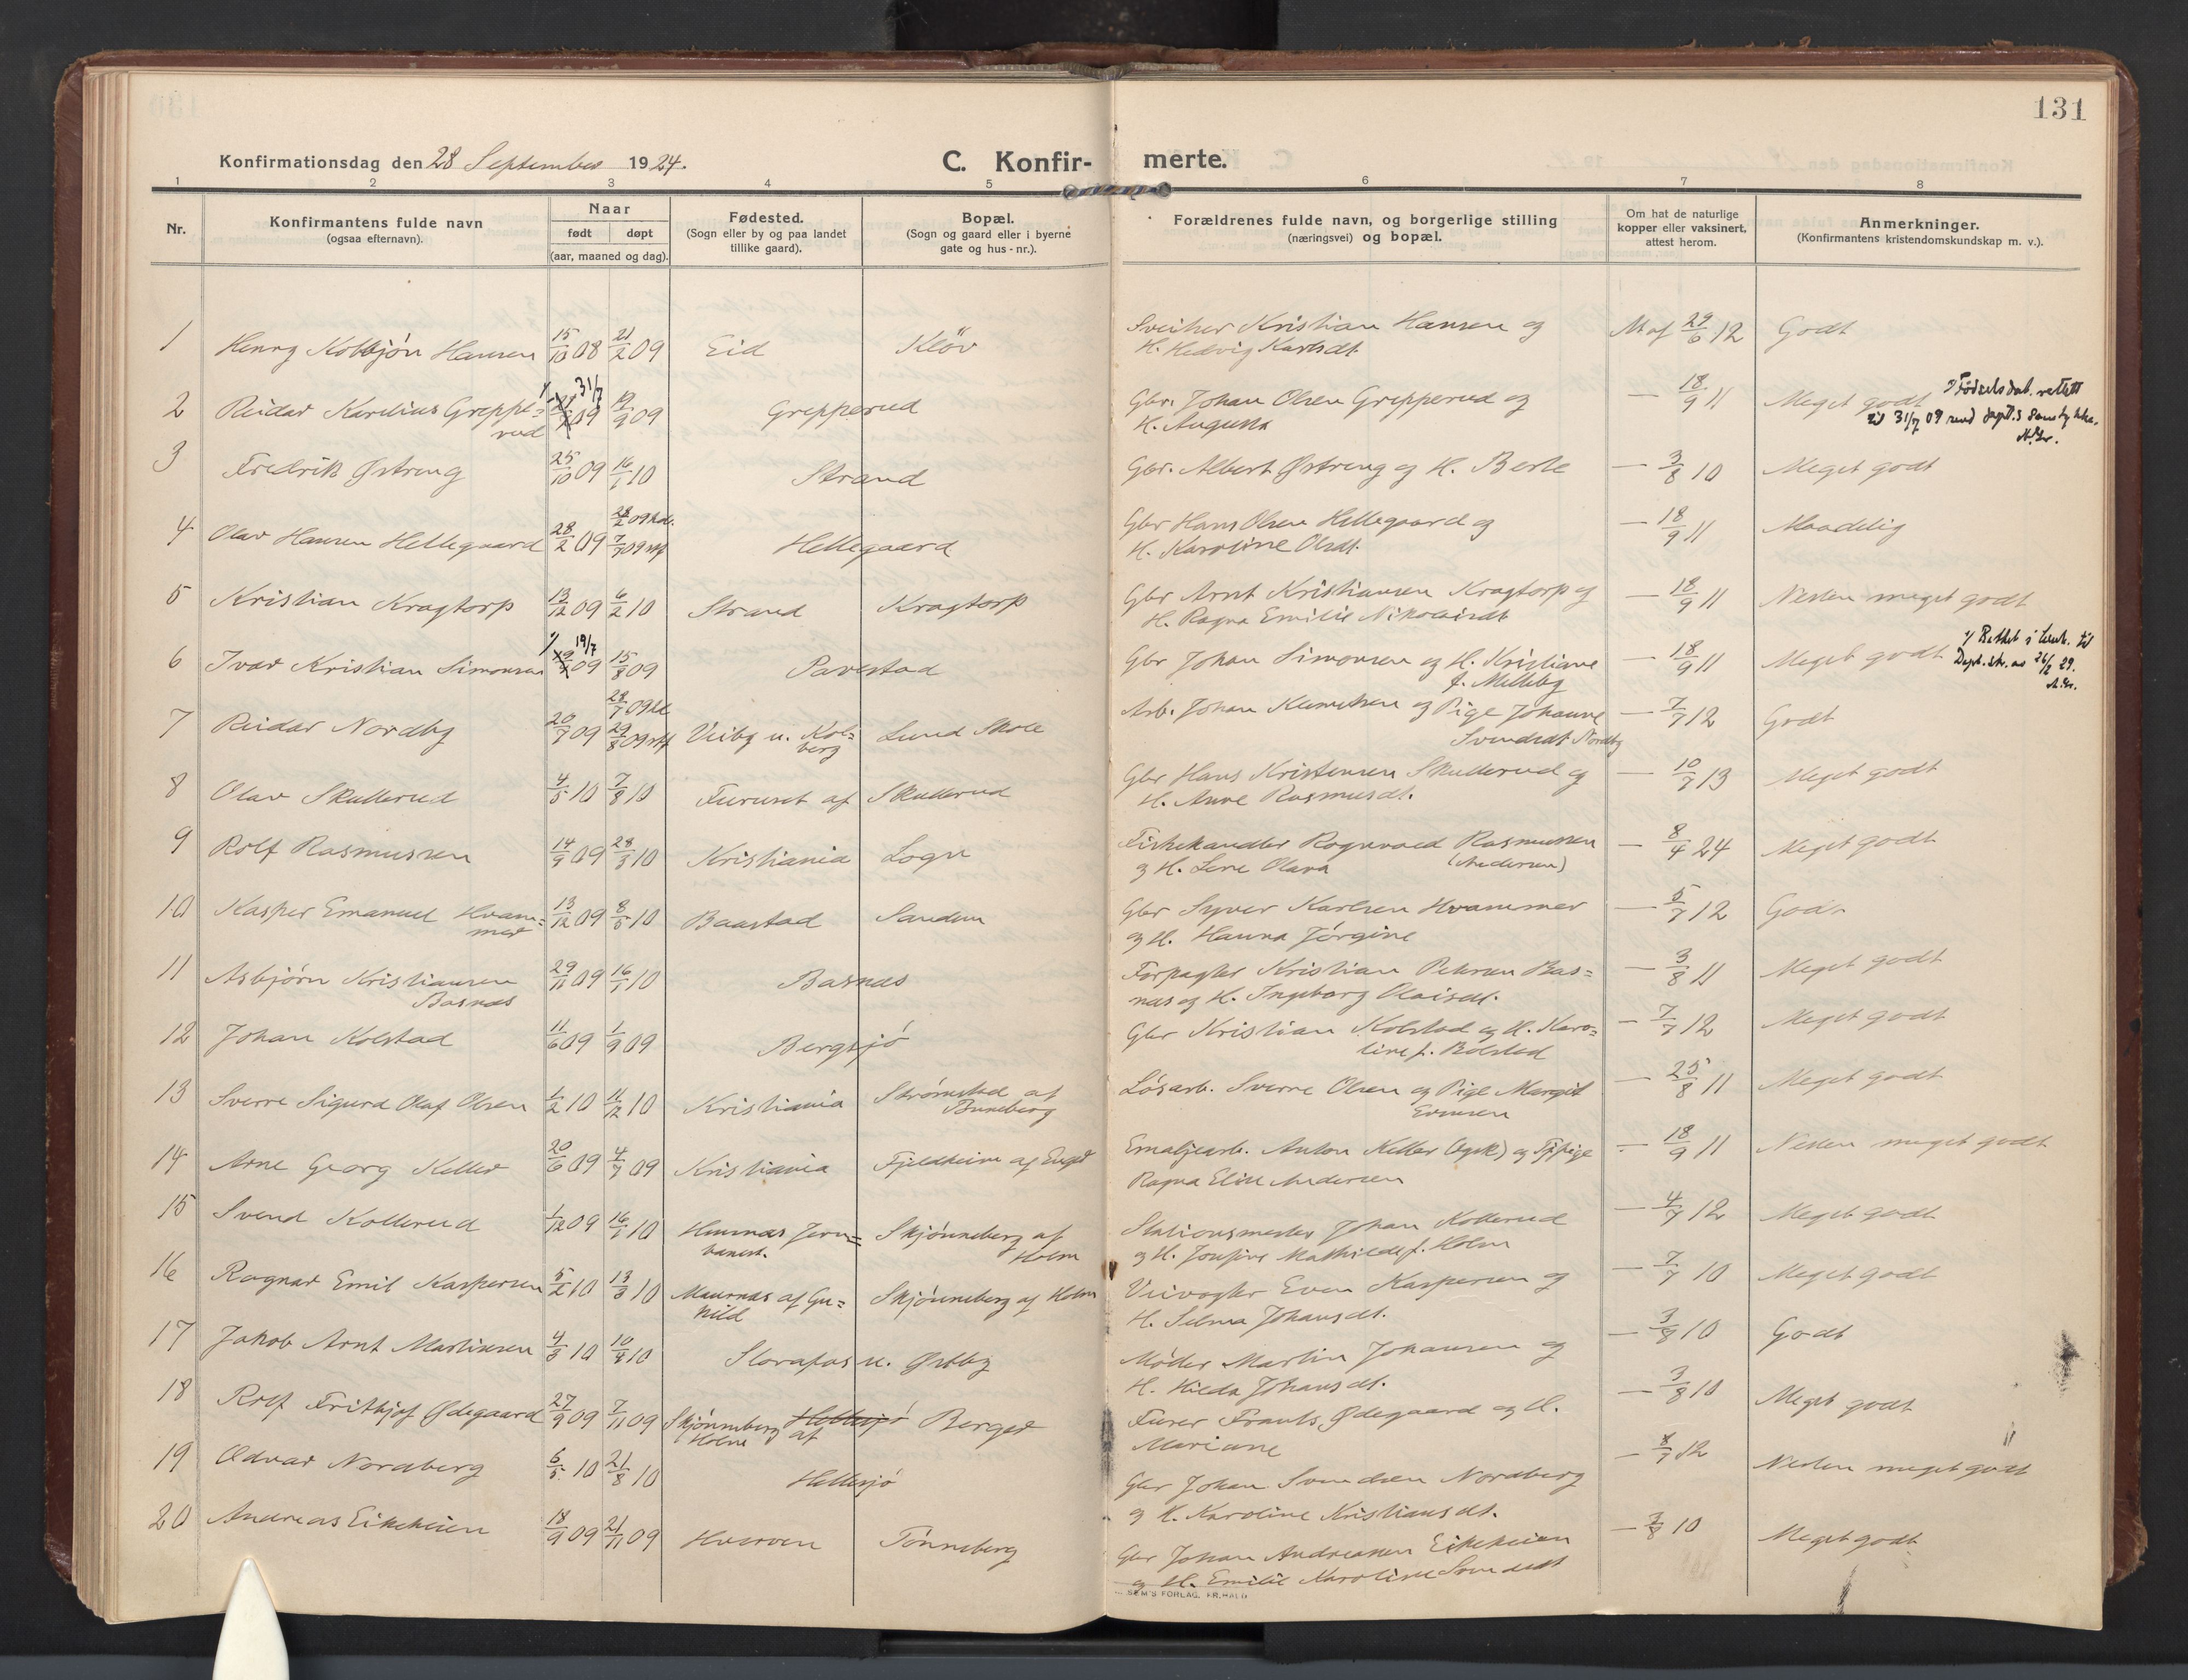 131
Konfirmationsdag den 28 September 1924.
C. Konfir- merte.
1 2 3 4 5 6 7 8
Nr.
Konfirmantens fulde navn
(ogsaa efternavn).
Naar
født døpt
(aar, maaned og dag).
Fødested.
(Sogn eller by og paa landet
tillike gaard).
Bopæl.
(Sogn og gaard eller i byerne
gate og hus-nr.).
Forældrenes fulde navn, og borgerlige stilling
(næringsvei) og bopæl.
Om hat de naturlige
kopper eller vaksinert,
attest herom.
Anmerkninger.
(Konfirmantens kristendomskundskap m. v.).
1 Henry Kolbjön Hansen 15/10 08 21/2 09 Eid Klöv
Sveitser Kristian Hansen og
H. Hedvig Karlsdt.
29/6 12 Godt
2 Reidar Karelius Greppe=
rud 1/ 31/7 09 19/9 09 Grepperud
Gbr. Johan Olsen Grepperud og
H. Augusta
— 18/9 11 Meget godt
1) Fødselsdat. rettet
til 31/7 09
3 Fredrik Østreng 25/10 09 16/1 10 Strand
Gbr. Albert Østreng og H. Berte
— 3/8 10 Meget godt
4 Olav Hansen Hellegaard 28/2 09 28/2 09 hd.
7/7 09 stf Hellegaard
Gbr Hans Olsen Hellegaard og
H. Karoline Olsdt.
— 18/9 11 Maadelig
5 Kristian Kragtorp 13/12 09 6/2 10 Strand Kragtorp
Gbr Arnt Kristiansen Kragtorp og
H. Ragna Emilie Nikolaisdt
— 18/9 11 Nesten meget godt
6 Ivar Kristian Simonsen 1/ 19/7 09 15/8 09 Pavestad
Gbr Johan Simonsen og H. Kristiane
f. Melleby
— 18/9 11 Meget godt
1) Rettet i henh. til
Dept. skr. av 26/2 29.
7 Reidar Nordby 20/7 09 28/7 09 hd
29/8 09 stf Veiby u. Kol=
berg Lund Skole
Arb. Johan Klemetsen og Pige Johanne
Svendsdt Nordby
— 7/7 12 Godt
8 Olav Skullerud 4/5 10 7/8 10 Furuset af Skullerud
Gbr Hans Kristensen Skullerud og
H. Anne Rasmusdt.
— 10/7 13 Meget godt
9 Rolf Rasmussen 14/9 09 28/3 10 Kristiania Logn
Fiskehandler Rognvald Rasmussen
og H. Lene Olava (Andersen)
— 8/4 24 Meget godt
10 Kasper Emanuel Hvam=
mer 13/12 09 8/5 10 Baastad Sandum
Gbr Syver Karlsen Hvammer
og H. Hanna Jörgine
— 5/7 12 Godt
11 Asbjørn Kristiansen
Basnæs 29/11 09 16/1 10 Basnæs
Forpagter Kristian Petersen Bas=
næs og H. Ingeborg Olaisdt.
— 3/8 11 Meget godt
12 Johan Kolstad 11/6 09 1/9 09 Bergsjó
Gbr Kristian Kolstad og H. Karo=
line f. Bolstad
— 7/7 12 Meget godt
13 Sverre Sigurd Olaf Olsen 1/2 10 11/12 10 Kristiania Strømstad af
Buneberg
Lösarb. Sverre Olsen og Pige Margit
Evensen
— 25/8 11 Meget godt
14 Arne Georg Keller 20/6 09 4/7 09 Kristiania Fjeldheim af Enger
Emaljearb. Anton Keller (tysk) og Tj.pige
Ragna Elise Andersen
— 18/9 11 Nesten meget godt
15 Svend Kollerud 1/12 09 16/1 10 Hemnæs Jern=
banest. Skjönneberg af
Holm
Stationsmester Johan Kollerud
og H. Josefine Mathilde f. Holm
— 4/7 12 Meget godt
16 Ragnar Emil Kaspersen 5/2 10 13/3 10 Maurnæs af Gu=
nild Skjönneberg af Holm
Veivogter Even Kaspersen og
H. Selma Johansdt.
— 7/7 10 Meget godt
17 Jakob Arnt Martinsen 4/3 10 10/4 10 Slorafos u. Østby
Møder Martin Johansen og
H. Hilda Johansdt.
— 3/8 10 Godt
18 Rolf Frithjof Ødegaard 27/9 09 7/11 09 Skjönneberg af
Holm Hellesjø Berger
Furer Frants Ødegaard og H.
Mariane
— 3/8 10 Meget godt
19 Edvar Nordberg 6/5 10 21/8 10 Hellesjö
Gbr Johan Svendsen Nordberg
og H. Karoline Kristiansdt.
— 8/7 12 Nesten meget godt
20 Andreas Eikeheien 18/9 09 21/11 09 Hverven Tönneberg
Gbr Johan Andreassen Eikeheien
og H. Emilie Karoline Svendsdt
— 3/8 10 Meget godt
SEM'S FORLAG, FR.HALD